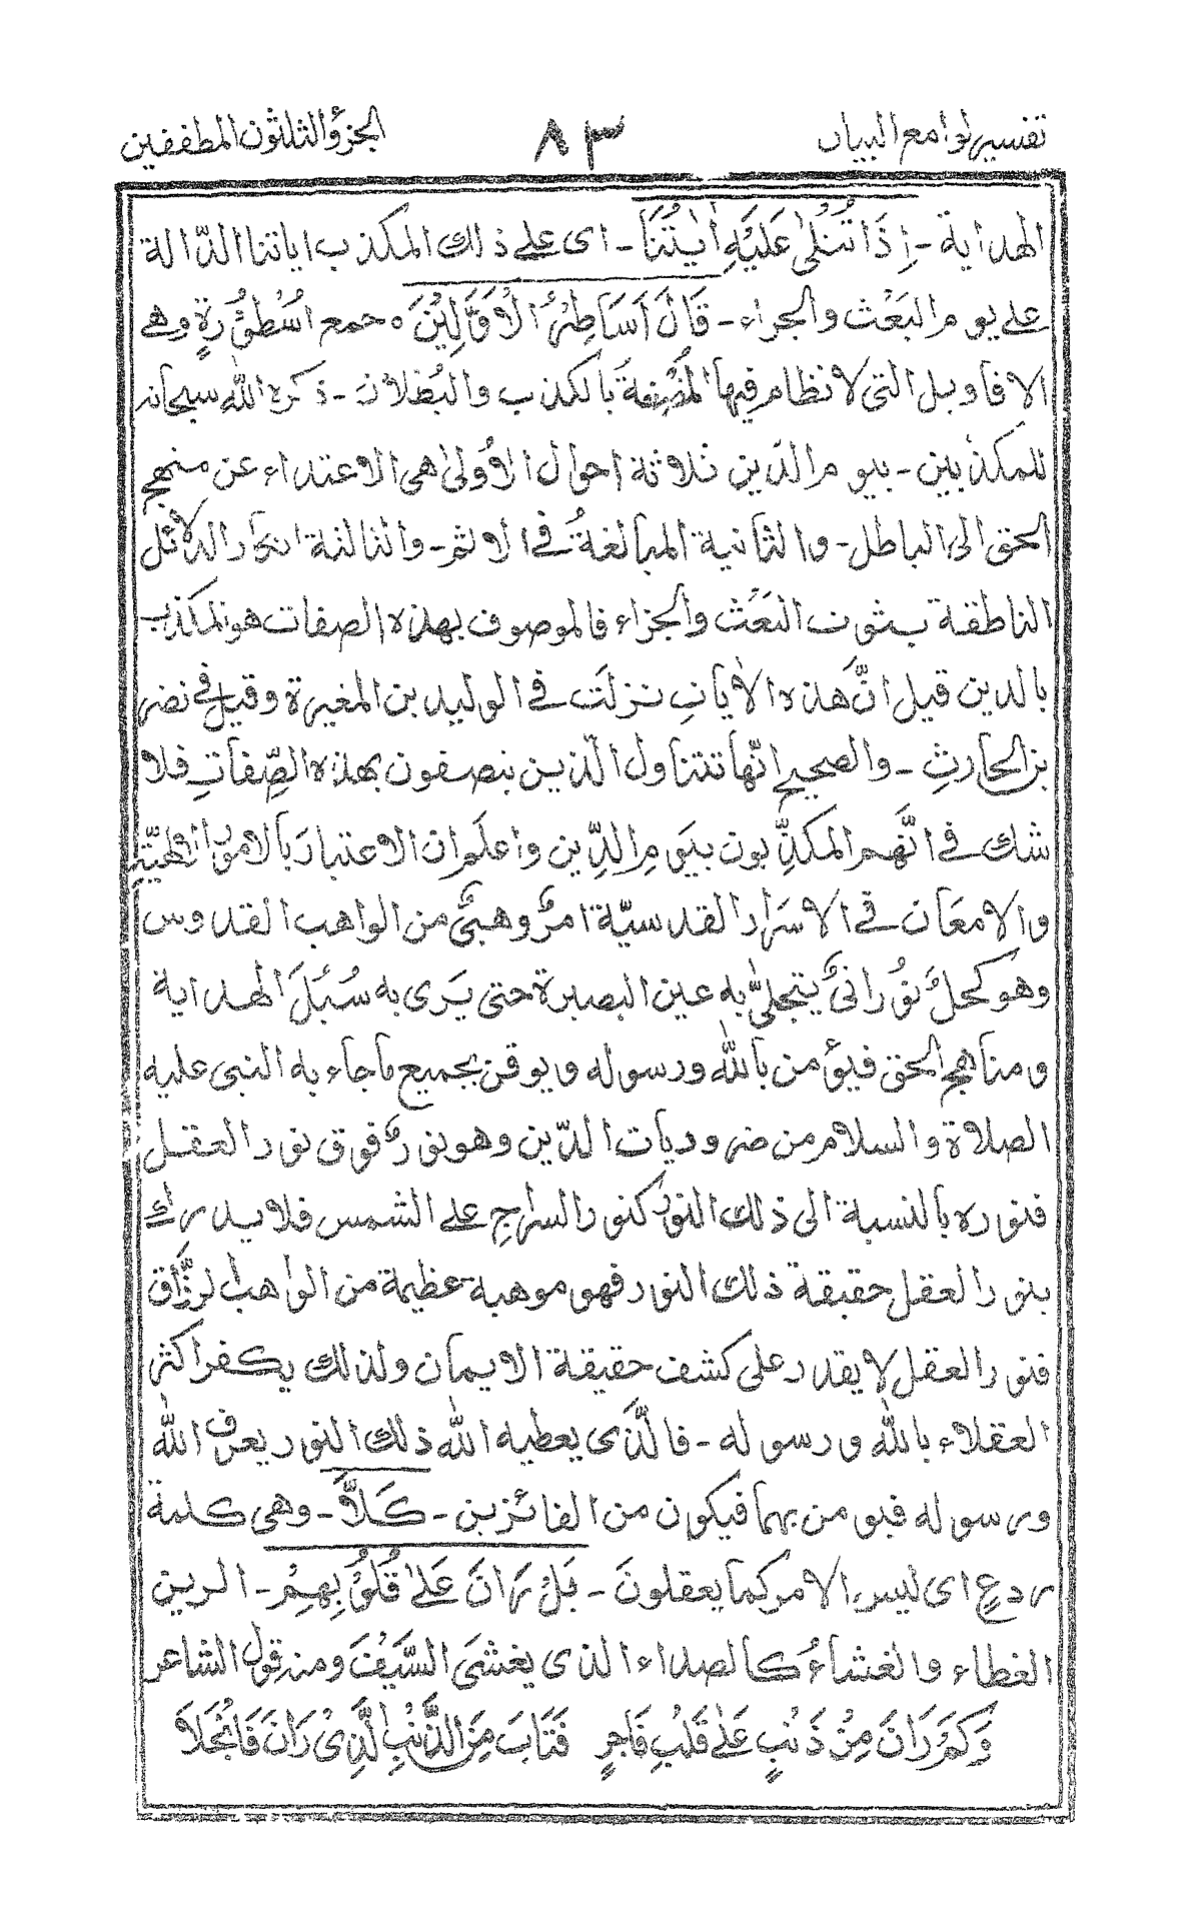 تفسیر لوامع البیان ٨٣ الجزؤ الثلثون المطففین
الهداية - اِذَا تُتْلٰى عَلَيْهِ اٰيٰتُنَا - اى على ذلك المكذب اياتنا الدّالة
على يوم البَعْث والجزاء - قَالَ اَسَاطِيْرُ الْاَوَّلِيْنَ ٥ جمع اُسْطُوْرةٍ وهى
الاقاويل التى لا نظام فيها المُصَنفةُ بالكذب والبُطلان - ذكره الله سبحانه
للمكذبين - بيوم الدّين ثلاثة احوال الأولىٰ هى الاعتداء عن منهج
الحق الى الباطل - والثانية المبالغةُ فى الاثم - والثالثة انكار الدلائل
الناطقة بثبوت البَعْث والجزاء فالموصوف بهذه الصفات هو المكذب
بالدين قيل انَّ هذه الأيات نزلت فى الوليد بن المغيرة وقيل فى نضر
بن الحارث - والصحيح انّها تتناول الّذين يتصفون بهذه الصِّفات فلا
شك فى انَّهم المكذِّبون بيَومِ الدِّين واعلم ان الاعتبار بالامور الٰهيّة
والامعَان فى الاسرار القدسيّة امرٌ وهبىٌّ من الواهب القدوس
وهو كحلٌ نُورانىٌّ يتجلىّٰ به عين البصيرة حتى يَرى به سُبُلَ الهداية
ومناهج الحق فيؤمن بالله ورسوله ويوقن بجميع ما جاء به النبى عليه
الصلاة والسلام من ضروريات الدّين وهو نورٌ فوق نور العقل
فنوره بالنسبة الى ذلك النور كنور السراج على الشمس فلا يدرك
بنور العقل حقيقة ذلك النور فهو موهبة عظيمة من الواهب الرزَّاق
فنور العقل لا يقدر على كشف حقيقة الايمان ولذلك يكفر اكثر
العقلاء بالله ورسوله - فالَّذى يعطيه الله ذلك النور يعرف الله
ورسوله فيؤمن بهما فيكون من الفائزين - كَلَّا - وهى كلمة
ردعٍ اى ليس الامر كما يعقلونَ - بَلْ رَانَ عَلىٰ قُلُوْبِهِمْ - الرين
الغطاء والغشاءُ كالصداء الذى يغشَى السَّيْفَ ومنه قول الشاعر
وَكَمْ رَانَ مِنْ ذَنْبٍ عَلىٰ قَلْبِ فَاجِرٍ فَتَابَ مِنَ الذَّنْبِ الَّذِىْ رَانَ فَانْجَلَا